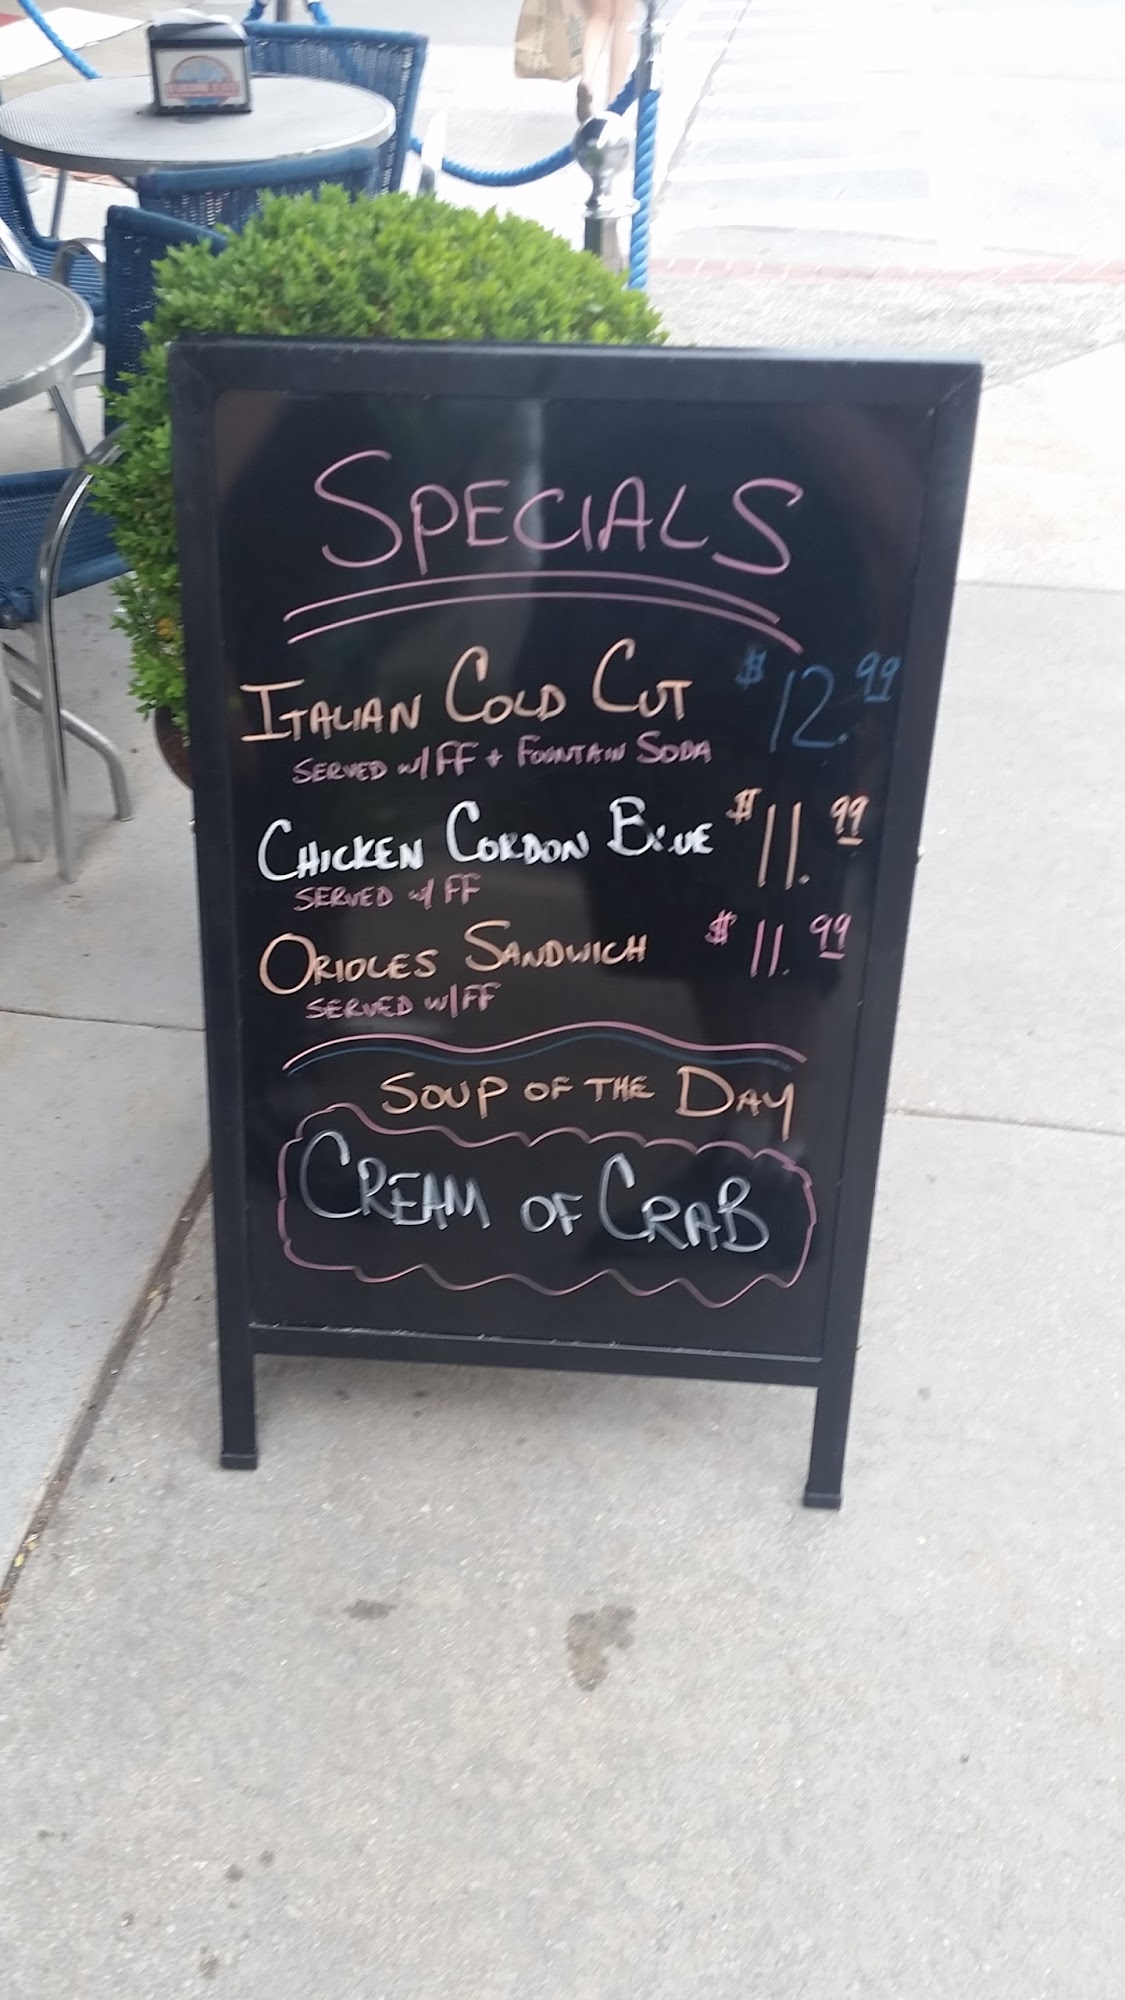 SPECIALS
ITALIAN COLD CUT $12.99
SERVED W/ FF + FOUNTAIN SODA
CHICKEN CORDON BLUE $11.99
SERVED W/ FF
ORIOLES SANDWICH $11.99
SERVED W/ FF
SOUP OF THE DAY
CREAM OF CRAB